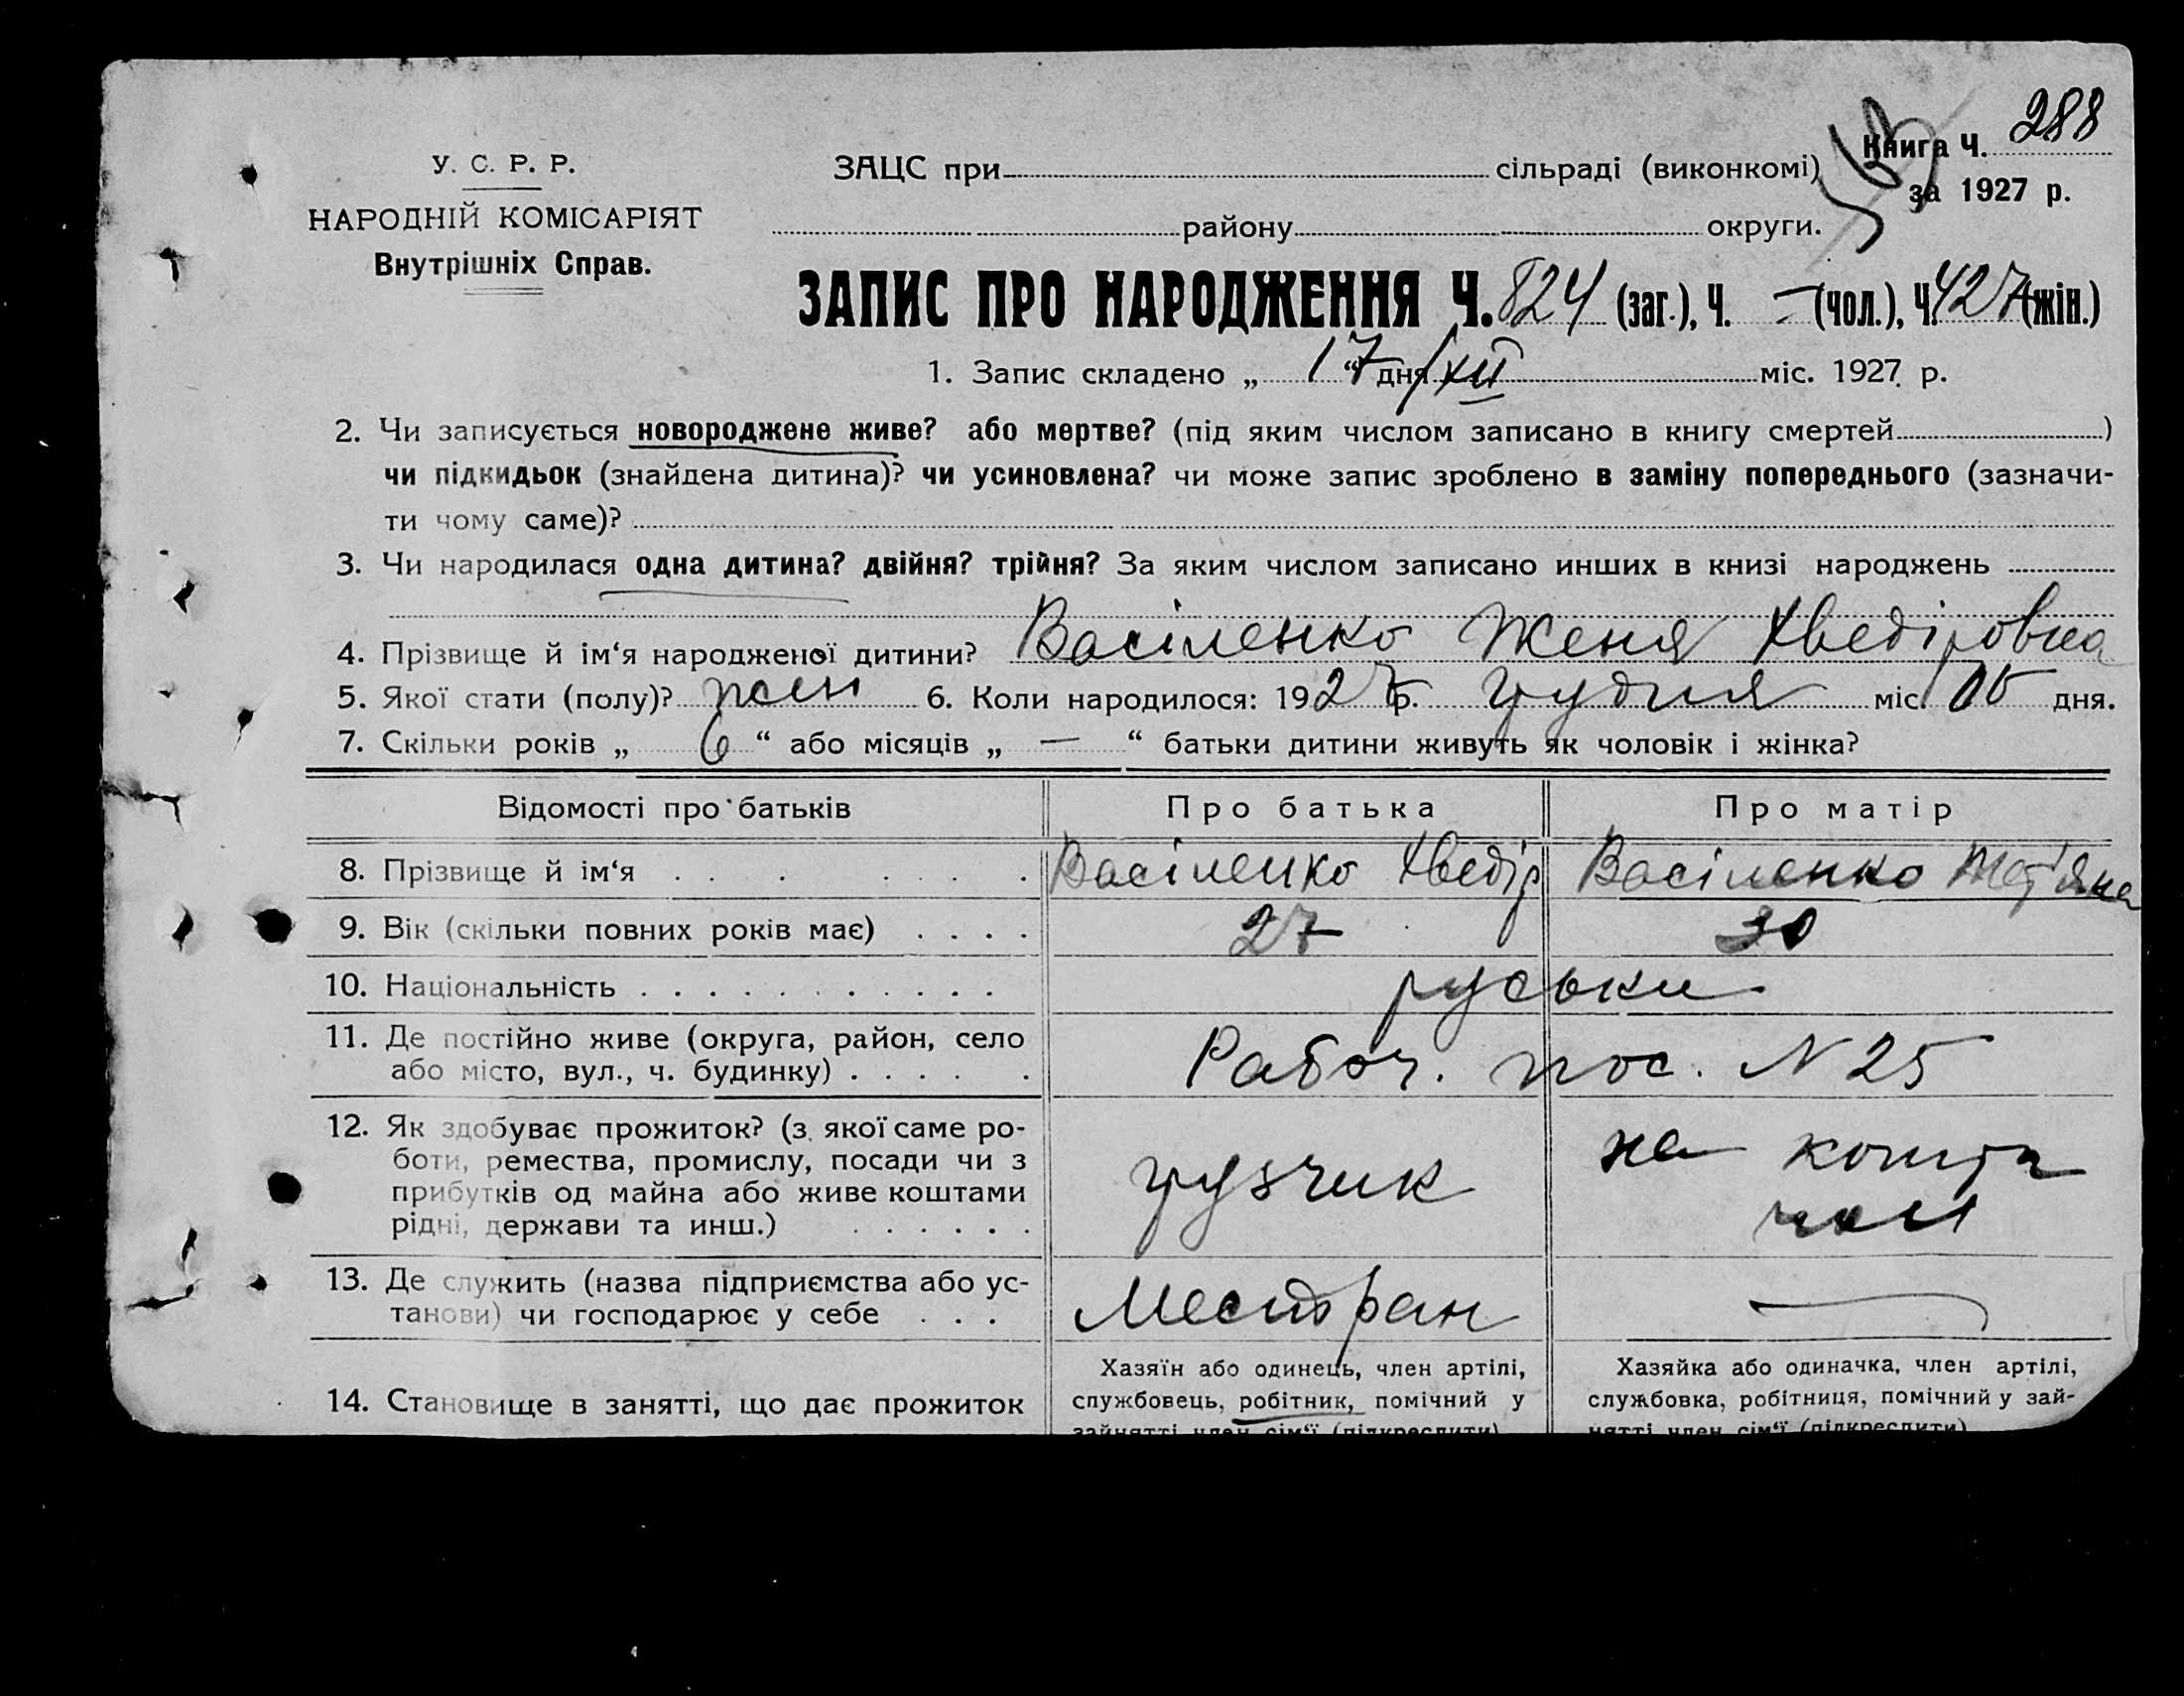 288
У. С. Р. Р.
ЗАЦС при сільраді (виконкомі) Книга Ч.
за 1927 р.
НАРОДНІЙ КОМІСАРІЯТ
району округи.
Внутрішніх Справ.
ЗАПИС ПРО НАРОДЖЕННЯ Ч. 824 (заг.), Ч. — (чол.), Ч. 427 (жін.)
1. Запис складено „ 17 “ дня XII міс. 1927 р.
2. Чи записується новороджене живе? або мертве? (під яким числом записано в книгу смертей )
чи підкидьок (знайдена дитина)? чи усиновлена? чи може запис зроблено в заміну попереднього (зазначи-
ти чому саме)?
3. Чи народилася одна дитина? двійня? трійня? За яким числом записано инших в книзі народжень
4. Прізвище й ім‘я народженої дитини? Васіленко Женя Хведіровна
5. Якої стати (полу)? жен 6. Коли народилося: 1927 р. грудня міс. дня.
7. Скільки років „ 6 “ або місяців „ — “ батьки дитини живуть як чоловік і жінка?
Відомості про батьків Про батька Про матір
8. Прізвище й ім‘я Васіленко Хведір Васіленко Тет'яна
9. Вік (скільки повних років має) 27 30
10. Національність руськи
11. Де постійно живе (округа, район, село
або місто, вул., ч. будинку) Рабоч. пос. N 25
12. Як здобуває прожиток? (з якої саме ро-
боти, ремества, промислу, посади чи з
прибутків од майна або живе коштами
рідні, держави та инш.) грузчик на кошти чол
13. Де служить (назва підприємства або ус-
танови) чи господарює у себе Местран —
14. Становище в занятті, що дає прожиток
Хазяїн або одинець, член артілі,
службовець, робітник, помічний у
зайнятті член сім‘ї (підкреслити)
Хазяйка або одиначка, член артілі,
службовка, робітниця, помічний у зай-
нятті член сім‘ї (підкреслити)